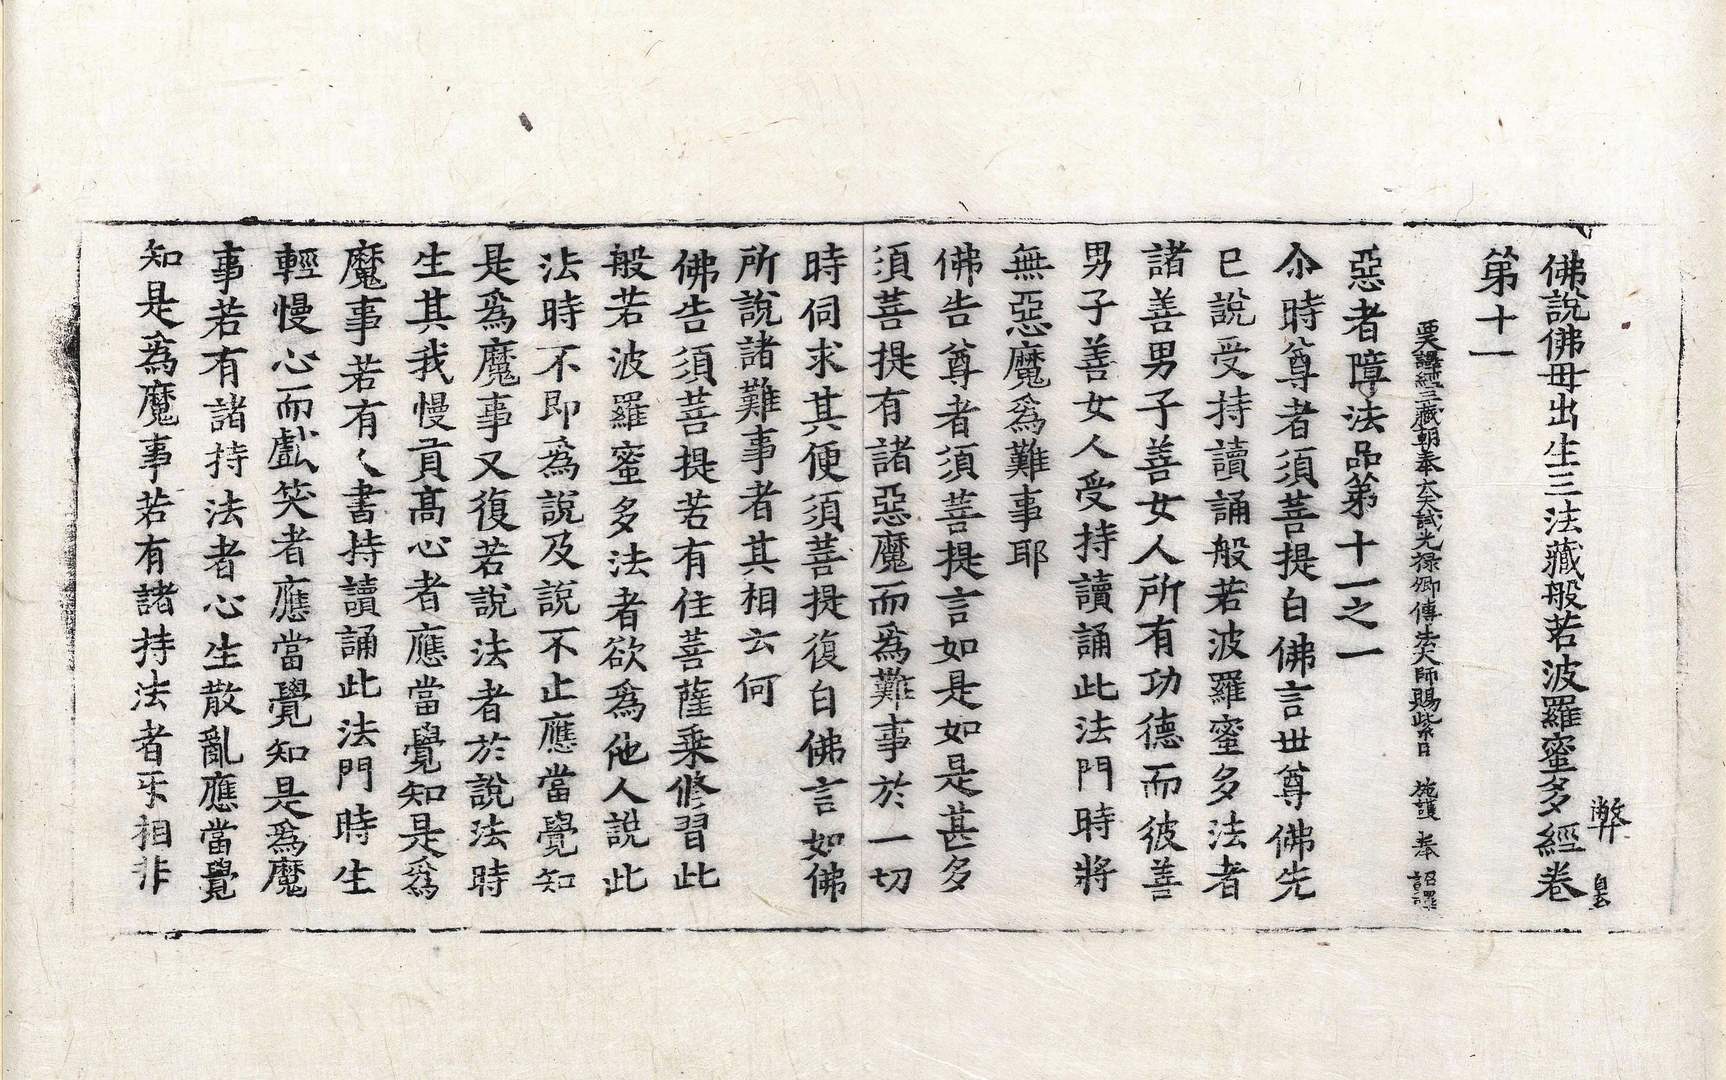 佛說佛毋出生三法藏般若波羅蜜多經卷
第十一
弊
譯經三藏朝奉大夫試光祿卿傳法大師賜紫臣 施護 奉 詔譯
惡者障法品第十一之一
尒時尊者須菩提白佛言世尊佛先
已說受持讀誦般若波羅蜜多法者
諸善男子善女人所有功德而彼善
男子善女人受持讀誦此法門時將
無惡魔爲難事耶
佛告尊者須菩提言如是如是甚多
須菩提有諸惡魔而爲難事於一切
時伺求其便須菩提復白佛言如佛
所說諸難事者其相云何
佛告須菩提若有住菩薩乘修習此
般若波羅蜜多法者欲爲他人說此
法時不即爲說及說不止應當覺知
是爲魔事又復若說法者於說法時
生其我慢貢髙心者應當覺知是爲
魔事若有人書持讀誦此法門時生
輕慢心而戲笑者應當覺知是爲魔
事若有諸持法者心生散亂應當覺
知是爲魔事若有諸持法者乎相非